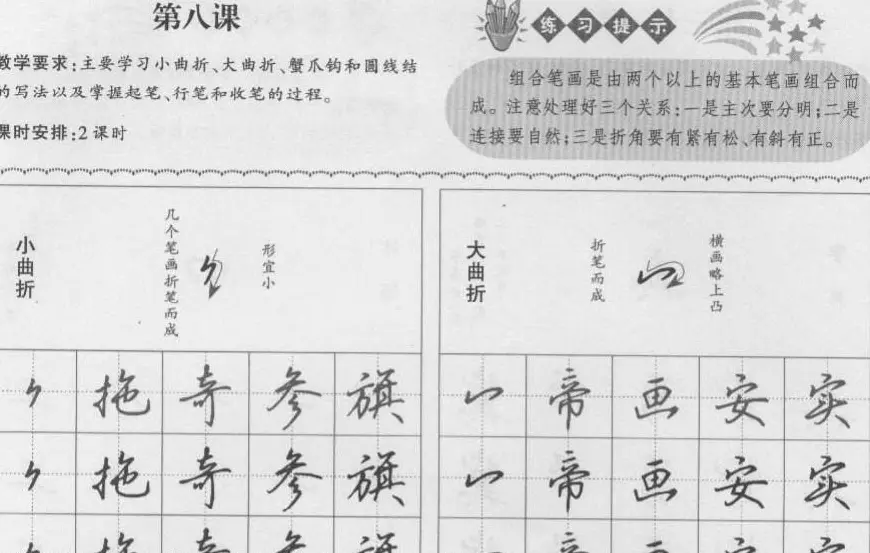 第八课
教学要求:主要学习小曲折、大曲折、蟹爪钩和圆线结
的写法以及掌握起笔、行笔和收笔的过程。
课时安排:2课时
练习提示
组合笔画是由两个以上的基本笔画组合而
成。注意处理好三个关系:一是主次要分明;二是
连接要自然;三是折角要有紧有松、有斜有正。
小曲折
几个笔画折笔而成
形宜小
拖奇参旗
拖奇参旗
拖奇参旗
大曲折
折笔而成
横画略上凸
帝画安实
帝画安实
帝画安实